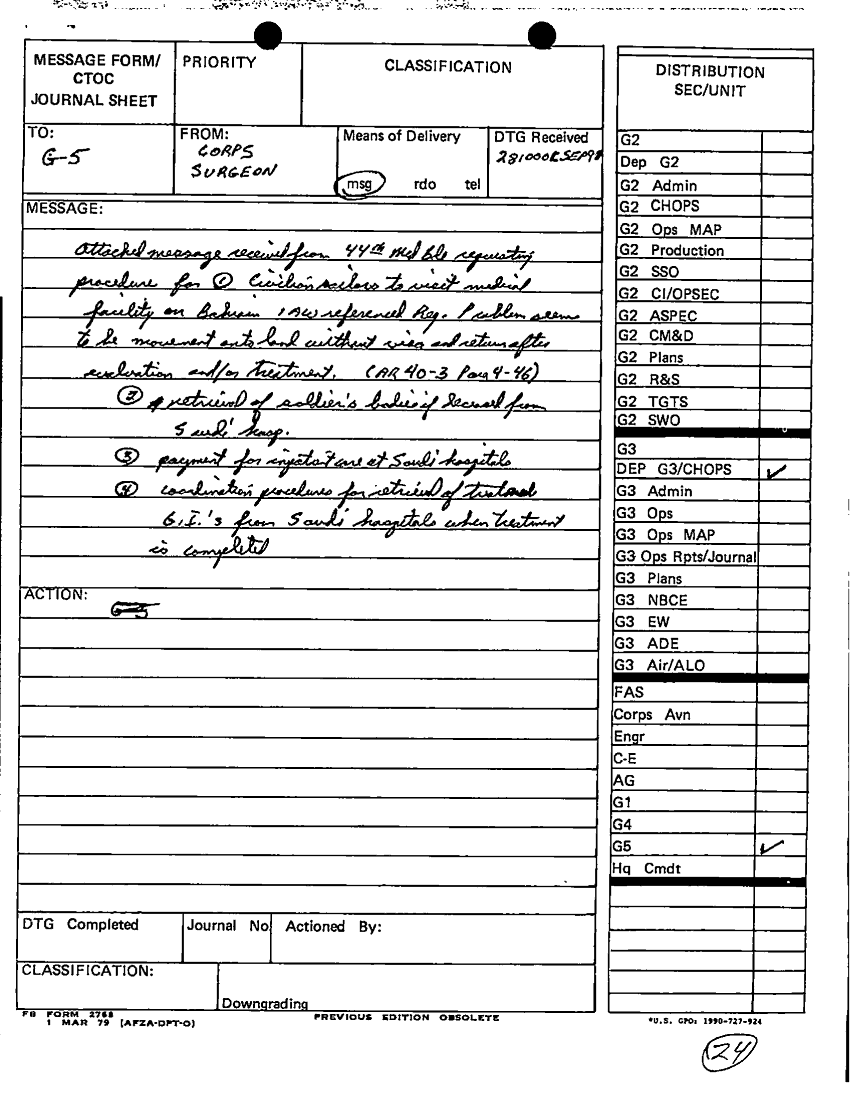 MESSAGE FORM/
CTOC
JOURNAL SHEET
PRIORITY
CLASSIFICATION
TO:
G-5
FROM:
CORPS
SURGEON
Means of Delivery
msg rdo tel
DTG Received
281000KSEP90
MESSAGE:
Attached message received from 44th Med Bde requesting
procedure for ① Civilian sailors to visit medical
facility on Bahrain IAW referenced Reg. Problem seems
to be movement onto land without visa and return after
evaluation and/or treatment. (AR 40-3 Para 4-46)
② retrieval of soldier's bodies if deceased from
Saudi hosp.
③ payment for inpatient care at Saudi hospitals
④ coordination procedures for retrieval of treated
G.I.'s from Saudi hospitals when treatment
is completed
ACTION:
G-5
DTG Completed
Journal No
Actioned By:
CLASSIFICATION:
Downgrading
FB FORM 2768
1 MAR 79 (AFZA-DPT-O)
PREVIOUS EDITION OBSOLETE
DISTRIBUTION
SEC/UNIT
G2
Dep G2
G2 Admin
G2 CHOPS
G2 Ops MAP
G2 Production
G2 SSO
G2 CI/OPSEC
G2 ASPEC
G2 CM&D
G2 Plans
G2 R&S
G2 TGTS
G2 SWO
G3
DEP G3/CHOPS ✓
G3 Admin
G3 Ops
G3 Ops MAP
G3 Ops Rpts/Journal
G3 Plans
G3 NBCE
G3 EW
G3 ADE
G3 Air/ALO
FAS
Corps Avn
Engr
C-E
AG
G1
G4
G5 ✓
Hq Cmdt
*U.S. GPO: 1990-727-924
24